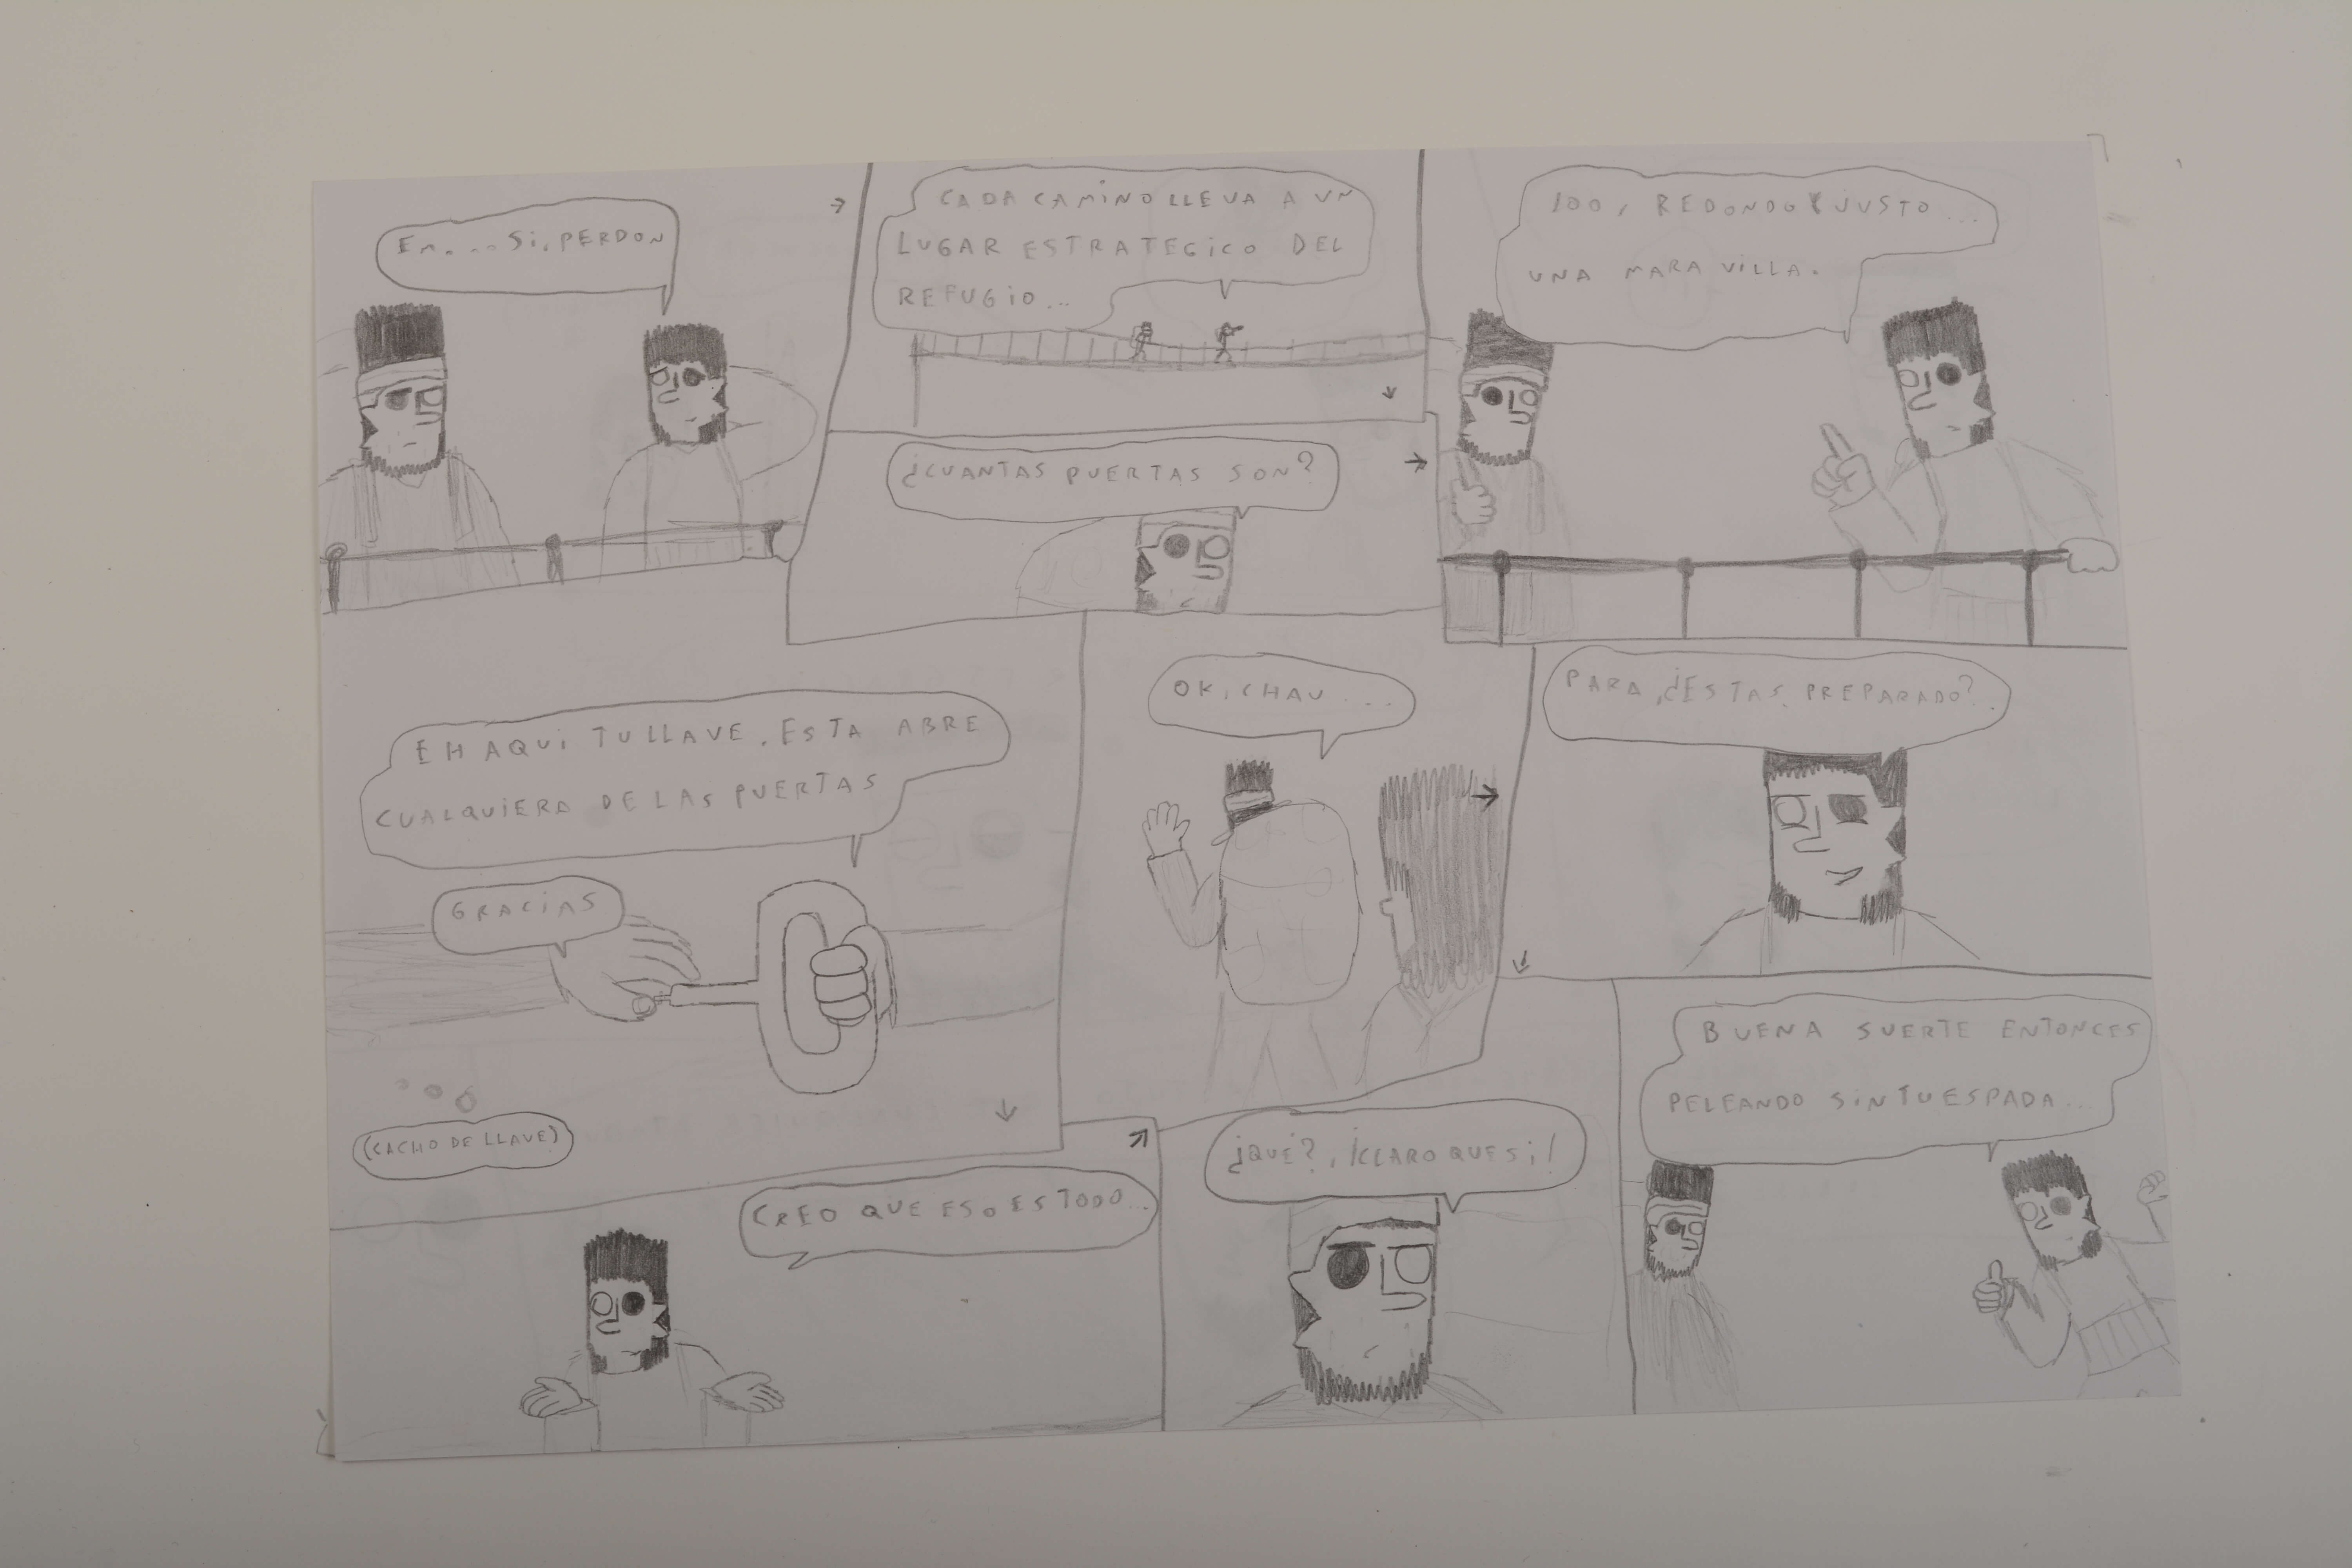 EM....SI, PERDON
CADA CAMINO LLEVA A UN
LUGAR ESTRATEGICO DEL
REFUGIO...
¿CUANTAS PUERTAS SON?
100, REDONDO Y JUSTO...
UNA MARAVILLA.
EH AQUI TU LLAVE. ESTA ABRE
CUALQUIERA DE LAS PUERTAS
GRACIAS
(CACHO DE LLAVE)
CREO QUE ESO ES TODO...
OK, CHAU...
PARA, ¿ESTAS PREPARADO?
¿QUE?, ¡CLARO QUE SI!
BUENA SUERTE ENTONCES
PELEANDO SIN TU ESPADA...